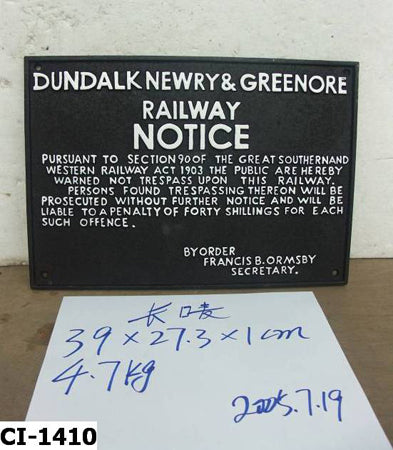 DUNDALK NEWRY & GREENORE
RAILWAY
NOTICE
PURSUANT TO SECTION 90 OF THE GREAT SOUTHERN AND
WESTERN RAILWAY ACT 1903 THE PUBLIC ARE HEREBY
WARNED NOT TRESPASS UPON THIS RAILWAY.
PERSONS FOUND TRESPASSING THEREON WILL BE
PROSECUTED WITHOUT FURTHER NOTICE AND WILL BE
LIABLE TO A PENALTY OF FORTY SHILLINGS FOR EACH
SUCH OFFENCE.
BY ORDER
FRANCIS B. ORMSBY
SECRETARY.
39 × 27.3 × 1 cm
4.7 kg
2005.7.19
CI-1410